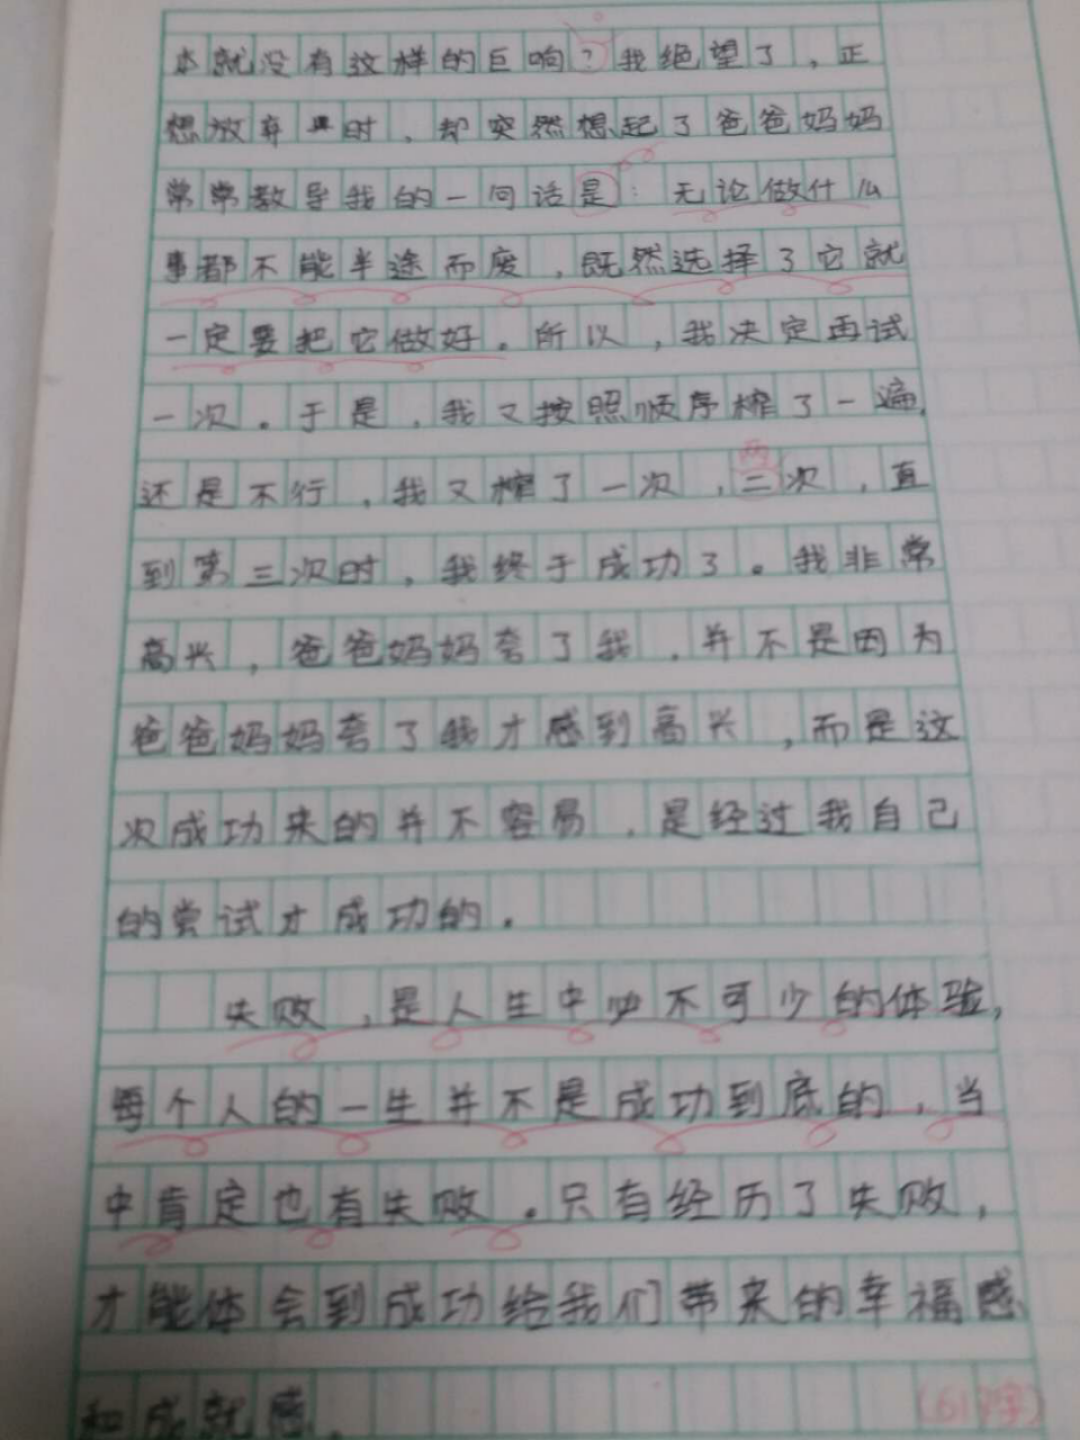 本就没有这样的巨响？我绝望了，正
想放弃时，却突然想起了爸爸妈妈
常常教导我的一句话是：无论做什么
事都不能半途而废，既然选择了它就
一定要把它做好。所以，我决定再试
一次。于是，我又按照顺序榨了一遍，
还是不行，我又榨了一次，二次，直
两
到第三次时，我终于成功了。我非常
高兴，爸爸妈妈夸了我，并不是因为
爸爸妈妈夸了我才感到高兴，而是这
次成功来的并不容易，是经过我自己
的尝试才成功的。
失败，是人生中必不可少的体验，
每个人的一生并不是成功到底的，当
中肯定也有失败。只有经历了失败，
才能体会到成功给我们带来的幸福感
和成就感。
(613字)